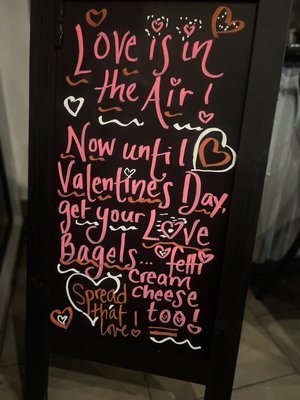 Love is in
the Air!
Now until
Valentines Day,
get your Love
Bagels...
cream
cheese
too!
Spread
that
love!